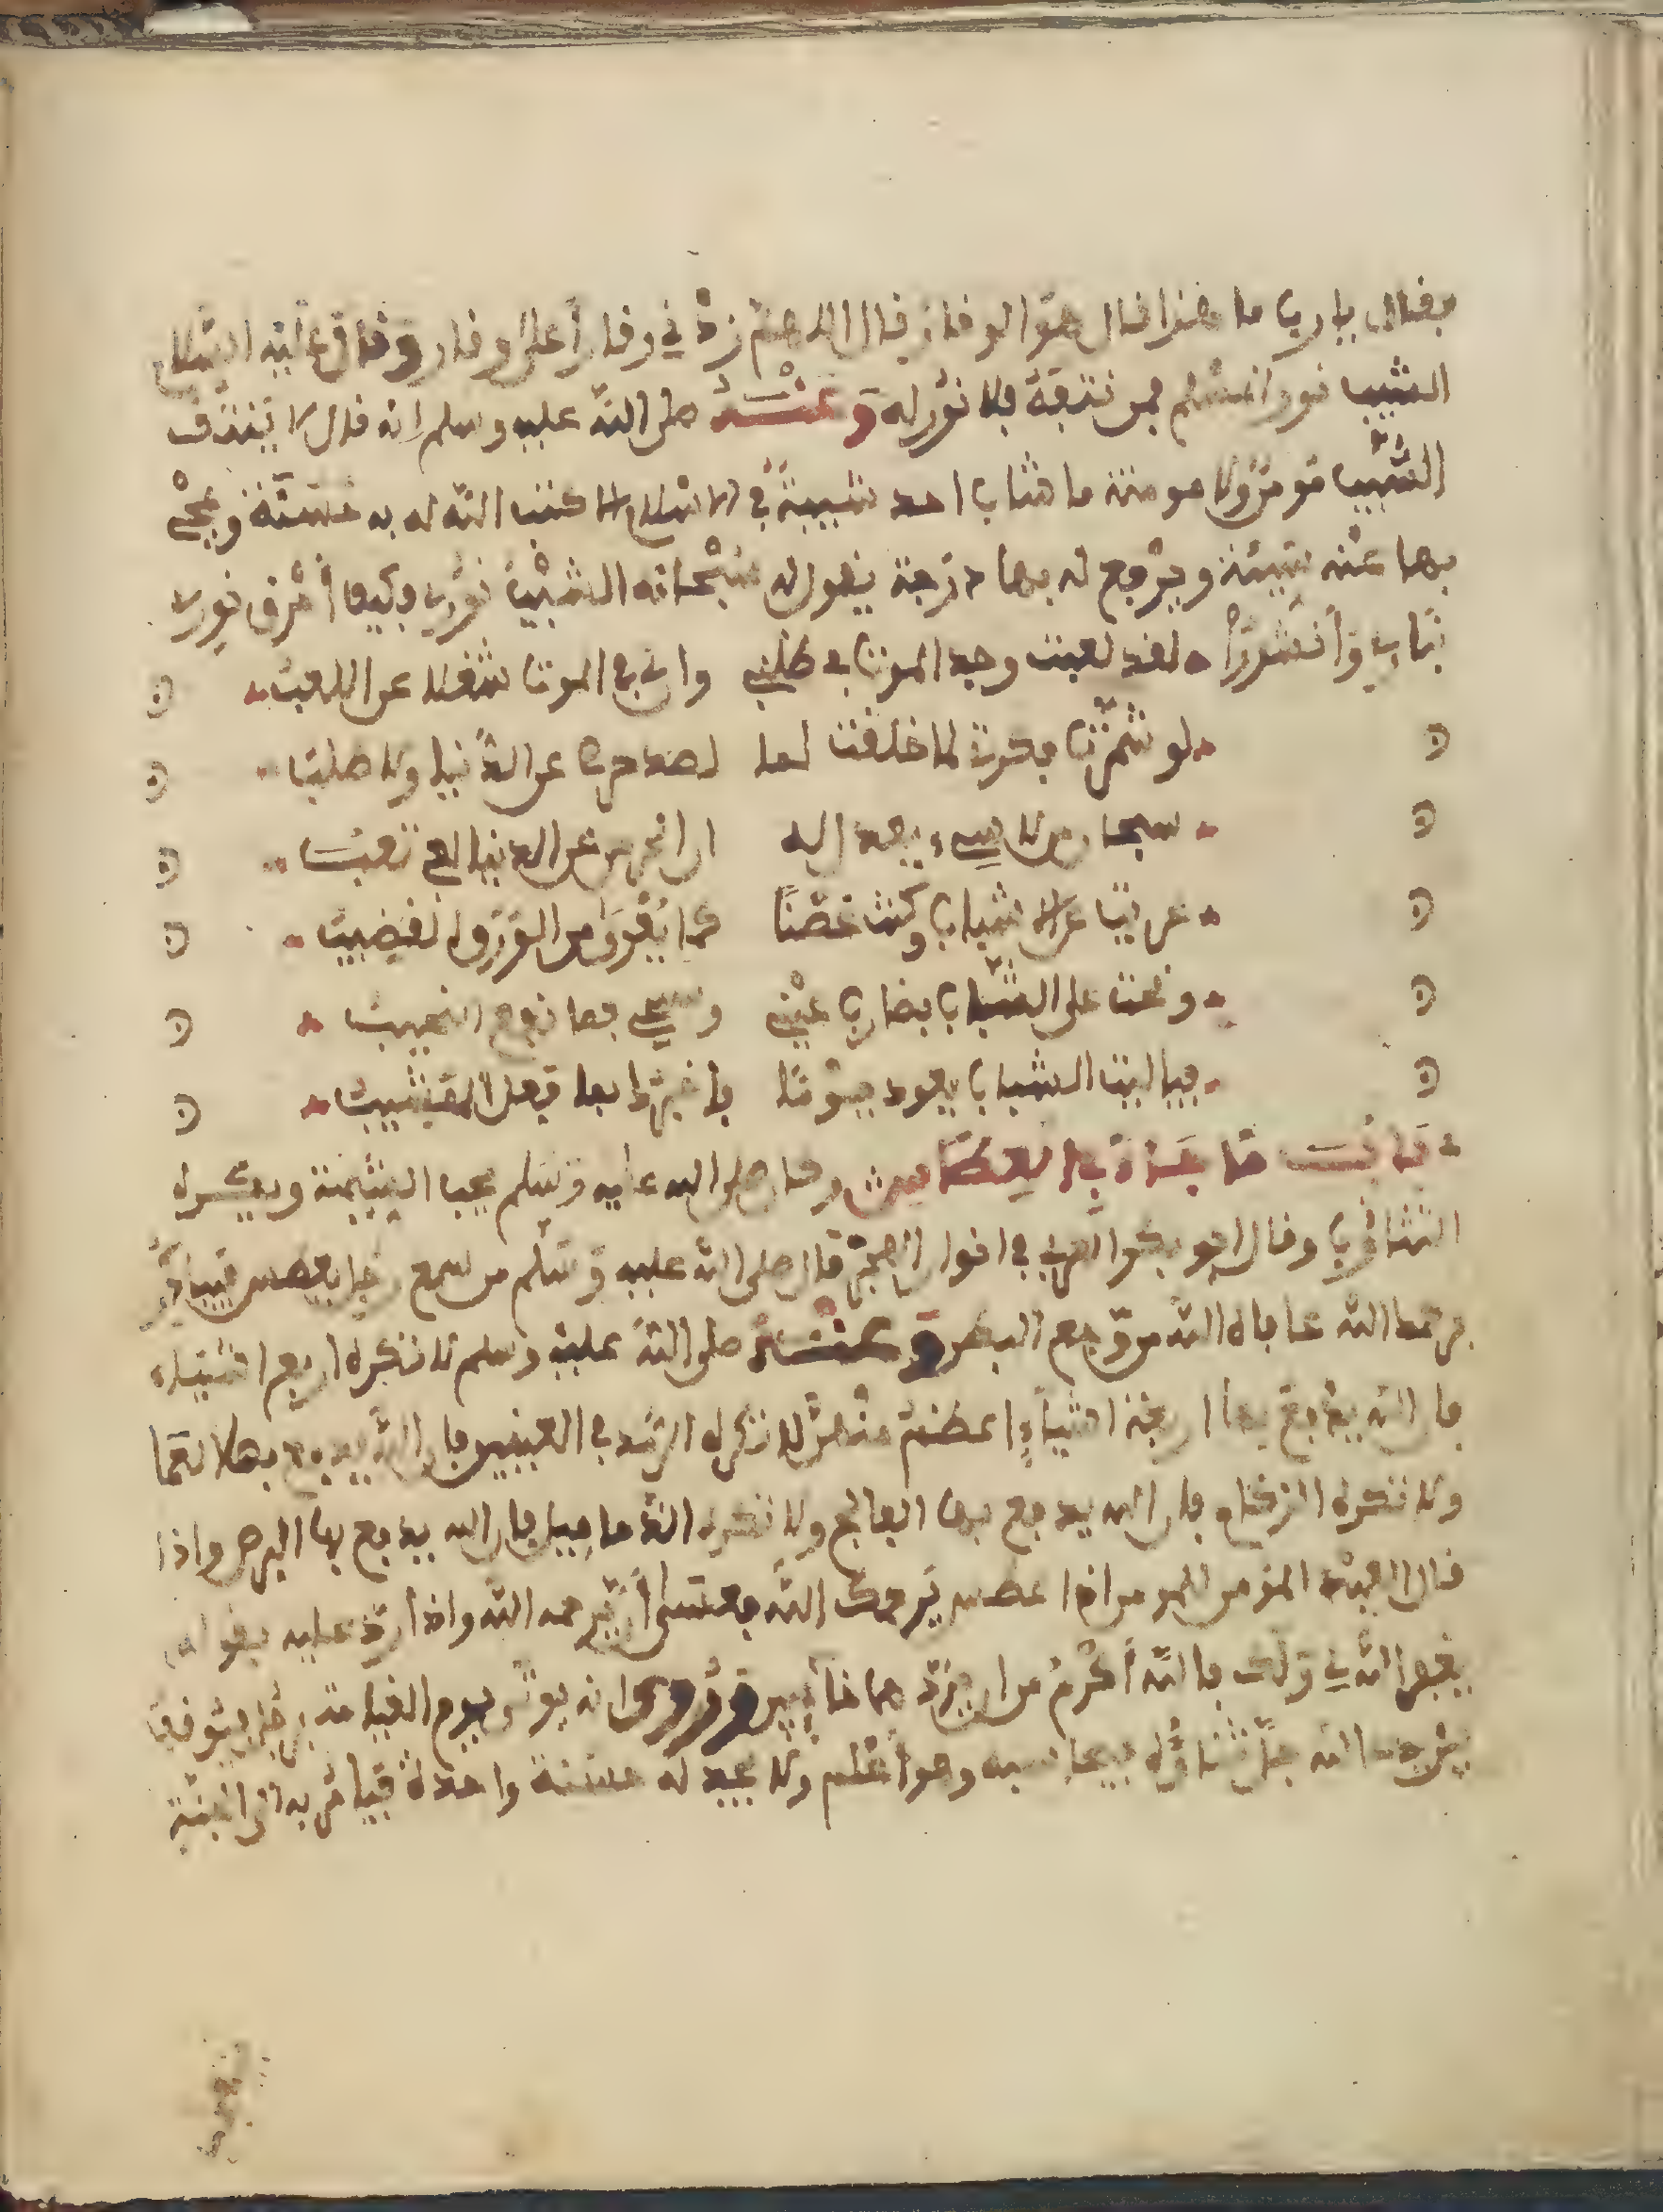 فقال يا رب ما هذا قال هو الوقار فقال اللهم زدني وقارا على وقار وقال عليه السلام
الشيب نور المسلم فمن نتفه فلا نور له وعنه صلى الله عليه وسلم انه قال لا ينتف
الشيب مومن ولا مومنة ما شاب احد شيبة في الاسلام الا كتب الله له به حسنة ومحى
بها عنه سيئة ورفع له بها درجة يقول الله سبحانه الشيب نوري وكيف أحرق نوري
بناري وأنشدوا لقد لعبت وجد الموت في طلبي وان في الموت شغلا عن اللعب
لو شمرت فكرتي لما خلقت لها لصد حرصي عن الدنيا ولا طلب
سبحان من لا شيء يعدله ان الحرص عن الدنيا لفي تعب
عريت عن الشباب وكنت غصنا كما يعرى من الورق القضيب
ونحت على الشباب بضاري عيني فما نفع النحيب
فيا ليت الشباب يعود يوما فاخبره بما فعل المشيب
باب ما جاء في العطاس وكان صلى الله عليه وسلم يحب التشميت ويكره
التثاؤب وقال ابو بكر العربي في اقوال قال صلى الله عليه وسلم من سمع رجلا يعطس فبادر
يرحمك الله عافاه الله من وجع البطن وعنه صلى الله عليه وسلم لا تكره اربع اشياء
فان الله يدفع بها اربعة اشياء اعظم منهن لا تكره الرمد في العينين فان الله يدفع بها العما
ولا تكره الزكام فان الله يدفع بها الفالج ولا تكره الدماميل فان الله يدفع بها البرص واذا
قال العبد المؤمن للمومن اذا عطس يرحمك الله فعسى أن يرحمه الله واذا رد عليه بقوله
يغفر الله لي ولك فالله أكرم من ان يردهما خائبين وروي انه يوتى يوم القيامة برجل فيوقف
بين يدي الله جل ثناؤه فيحاسبه وهو أعلم ولا يجد له حسنة واحدة فيامر به الى الجنة